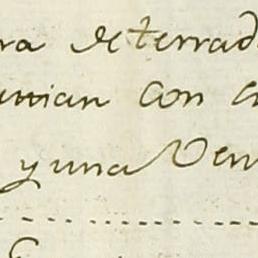 ra deterrad
uttian con c
y una Ven